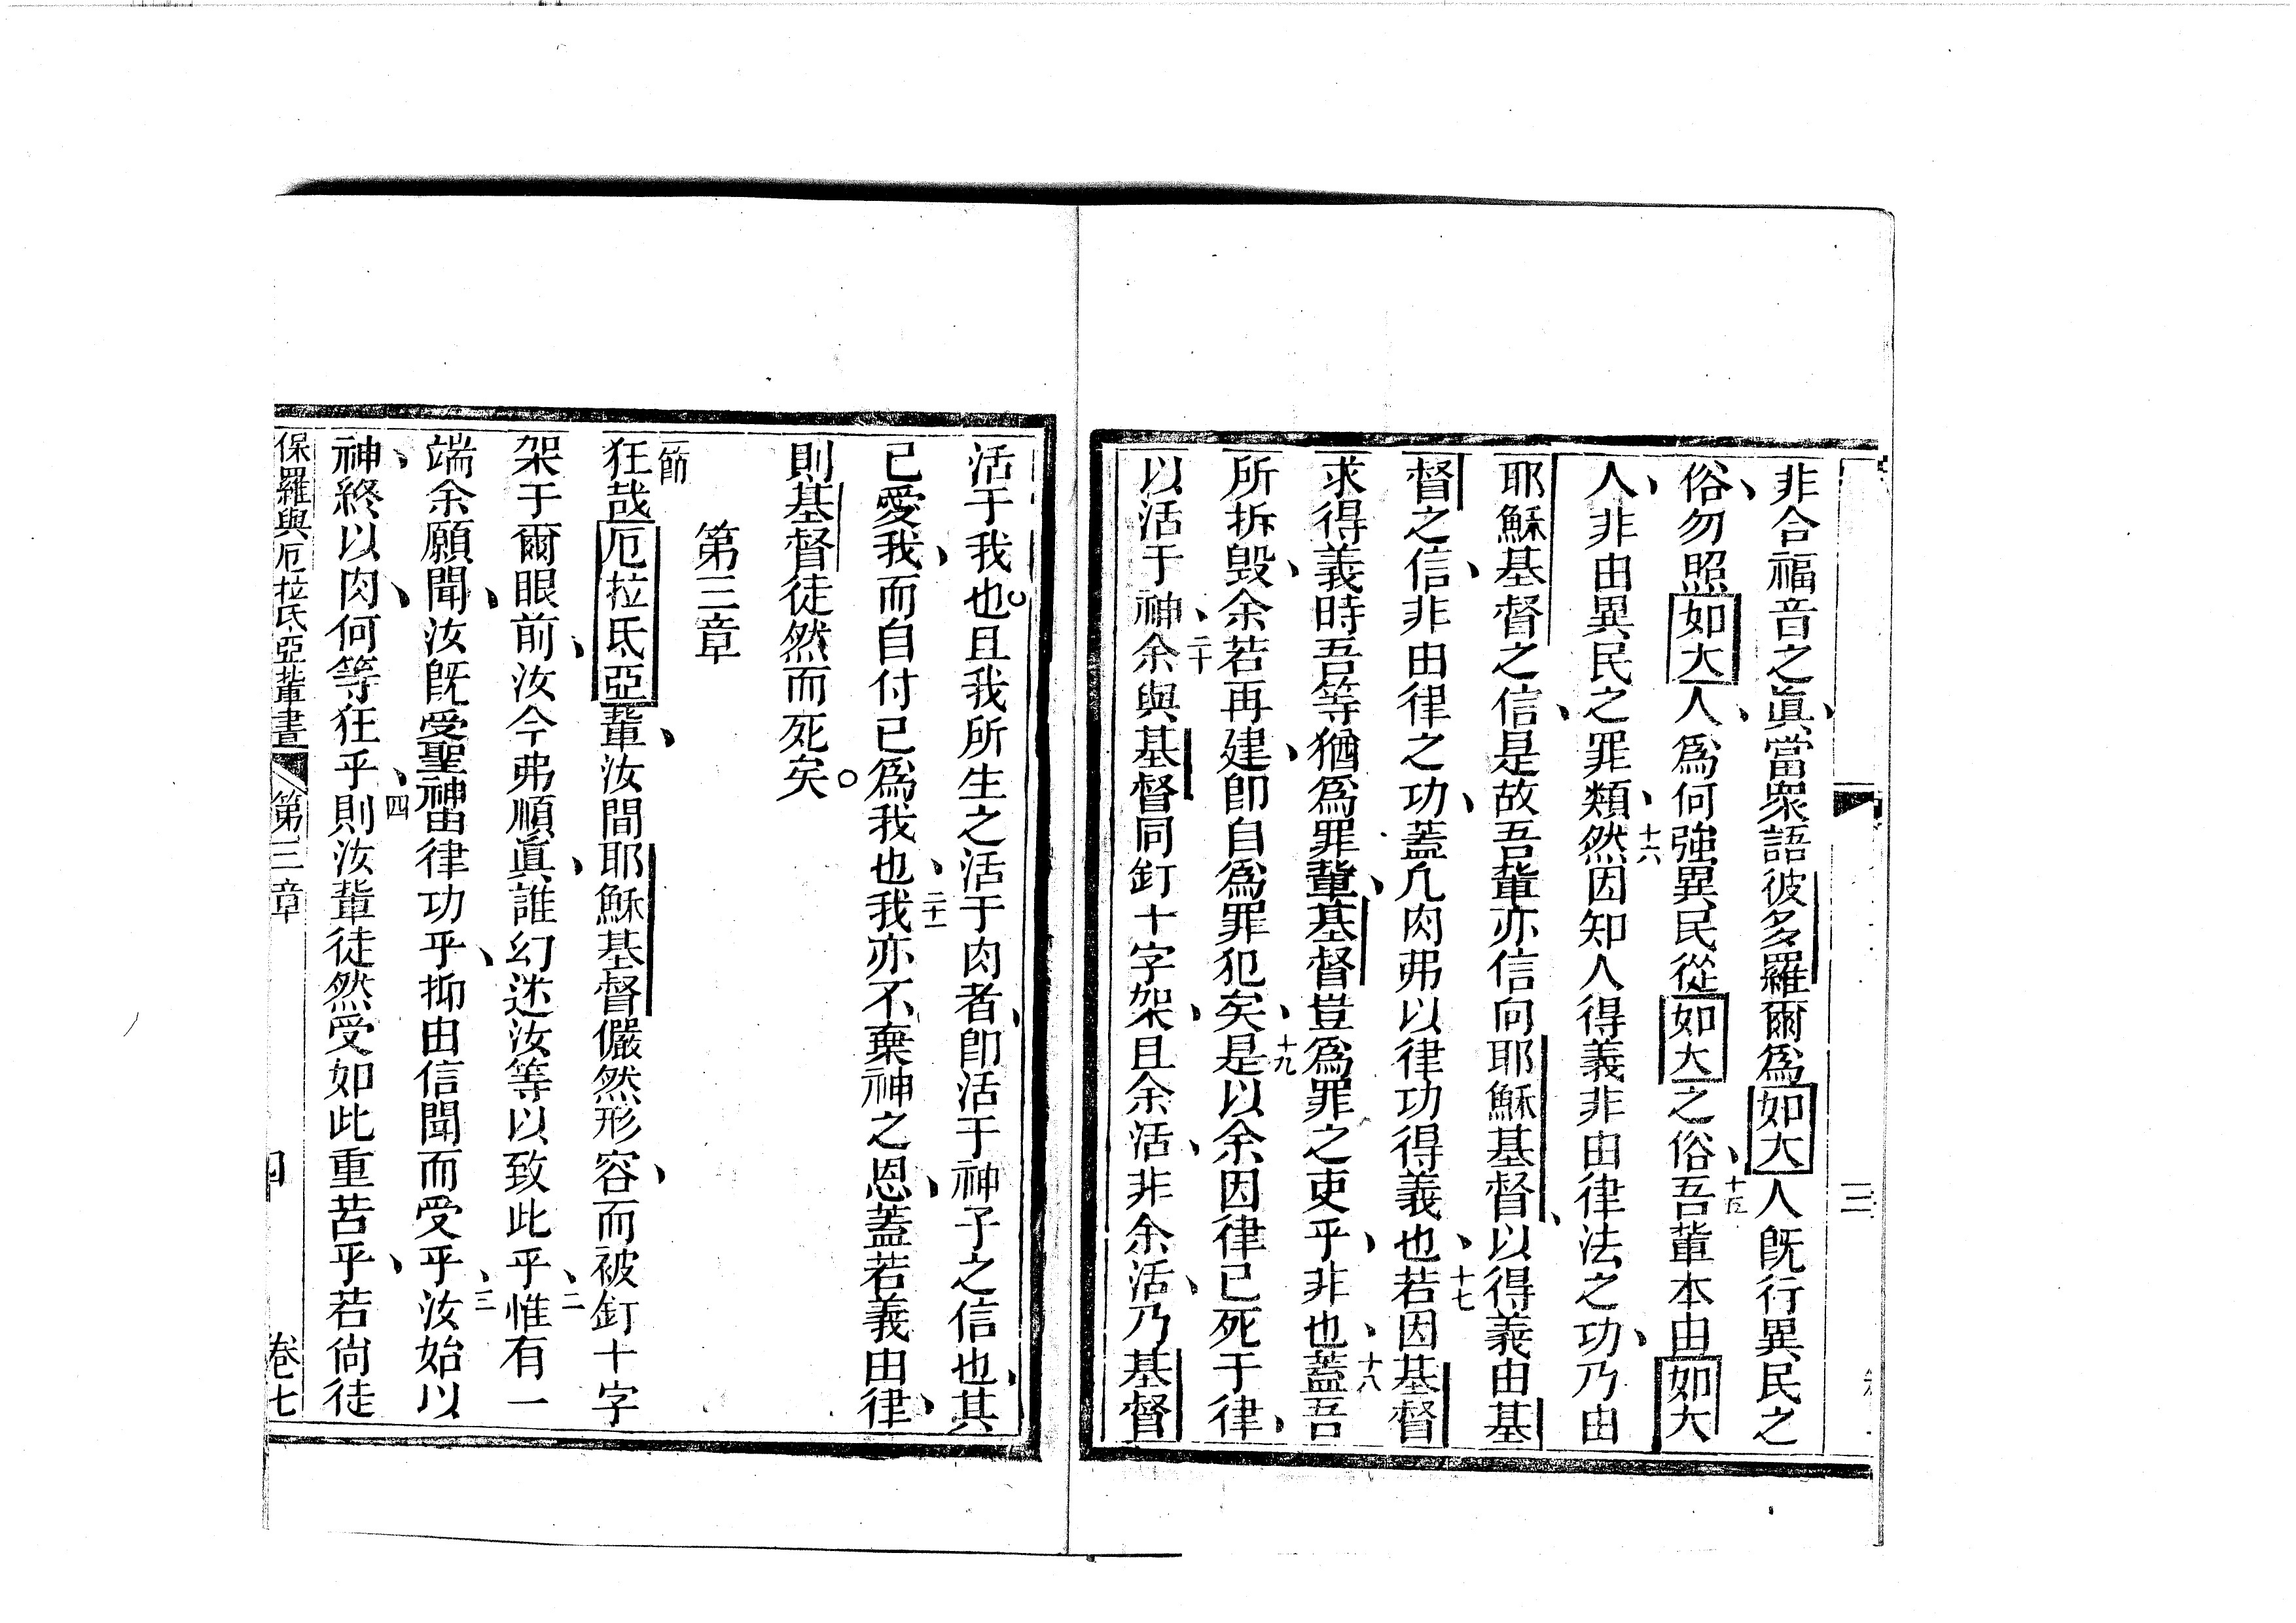 三
非合福音之眞、當眾語彼多羅爾爲如大人旣行異民之
俗、勿照如大人、爲何強異民從如大之俗、十五吾輩本由如大
人、非由異民之罪類、十六然因知人得義非由律法之功、乃由
耶穌基督之信、是故吾輩亦信向耶穌基督、以得義由基
督之信、非由律之功、蓋凢肉弗以律功得義也、十七若因基督
求得義時吾等猶爲罪輩、基督豈爲罪之吏乎、非也、十八蓋吾
所拆毀、余若再建、即自爲罪犯矣、十九是以余因律已死于律、
以活于神、二十余與基督同釘十字架、且余活、非余活、乃基督
活于我也。且我所生之活于肉者、即活于神子之信也、其
已愛我、而自付已爲我也、二十一我亦不棄神之恩、蓋若義由律、
則基督徒然而死矣。
第三章
一節
狂哉厄拉氐亞輩、汝間耶穌基督儼然形容、而被釘十字
架于爾眼前、汝今弗順眞、誰幻迷汝等以致此乎、二惟有一
端余願聞、汝旣受聖神由律功乎、抑由信聞而受乎、三汝始以
神、終以肉、何等狂乎、四則汝輩徒然受如此重苦乎、若尙徒
保羅與厄拉氐亞輩書 第三章 四 卷七